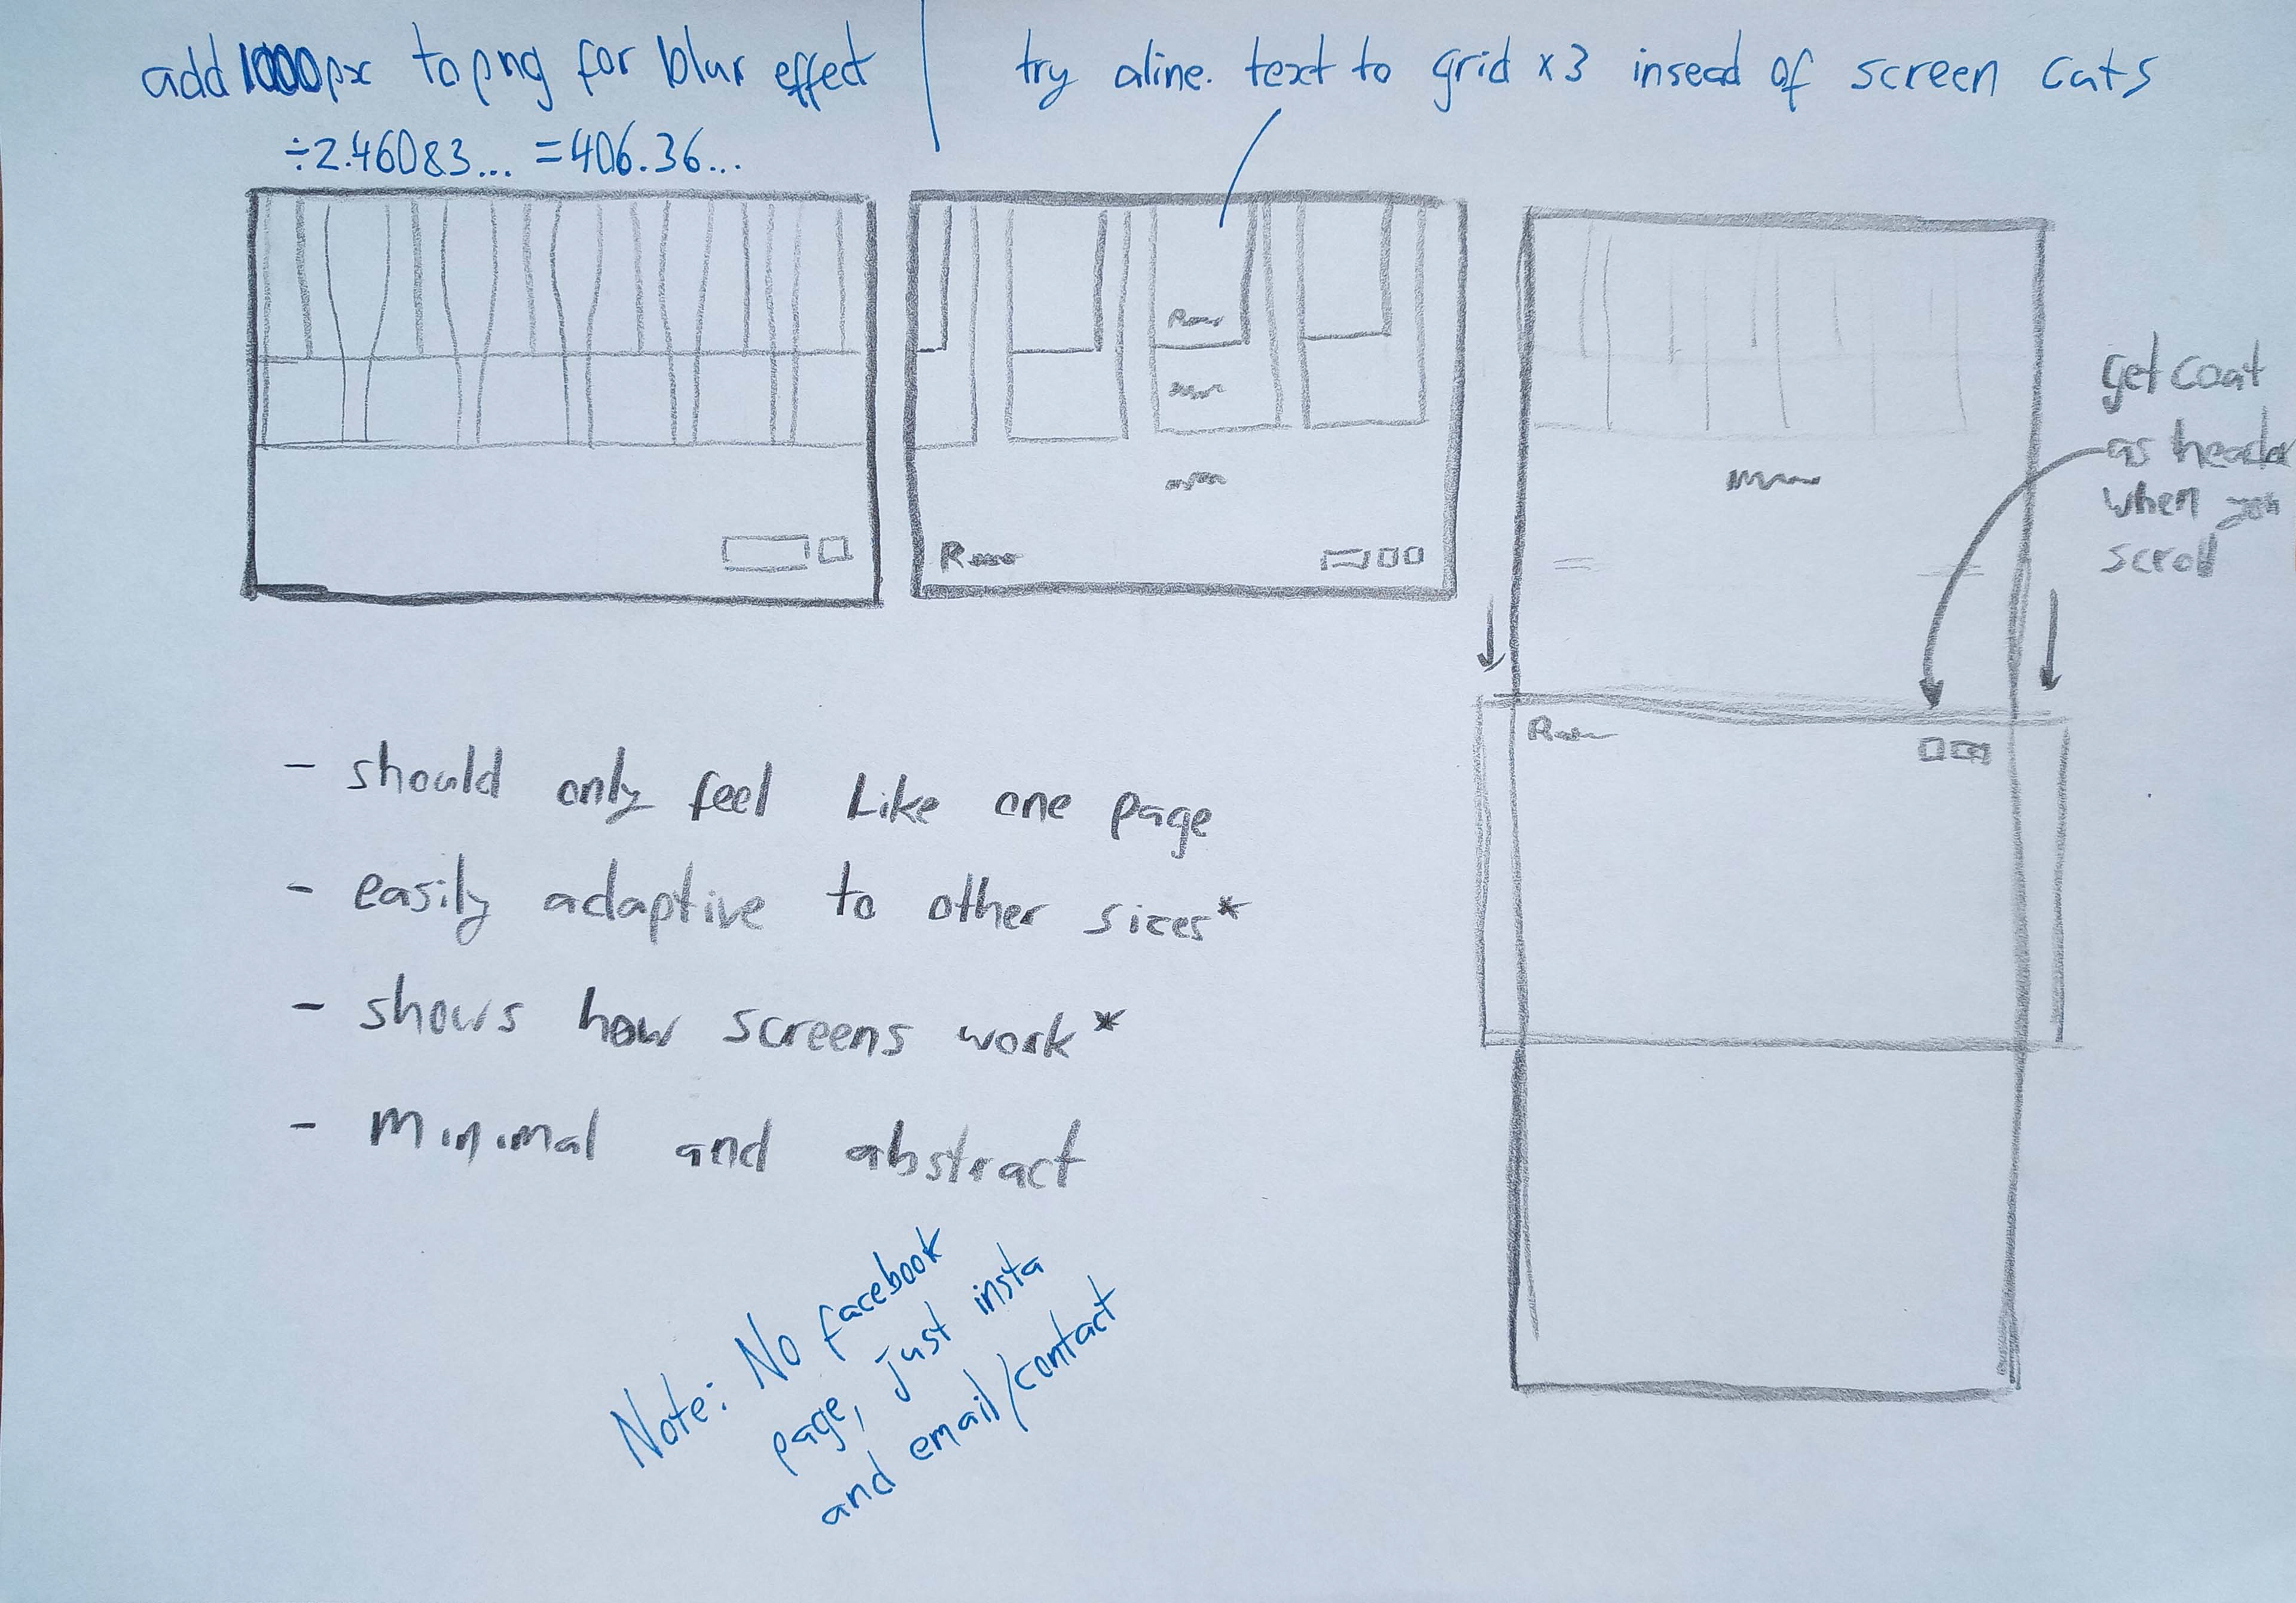 add 1000px to png for blur effect
÷2.46083... =406.36...
try aline. text to grid x3 insead of screen cats
get coat
as header
when you
scroll
- should only feel Like one page
- easily adaptive to other sizes*
- shows how screens work*
- Minimal and abstract
Note: No facebook
page, just insta
and email/contact